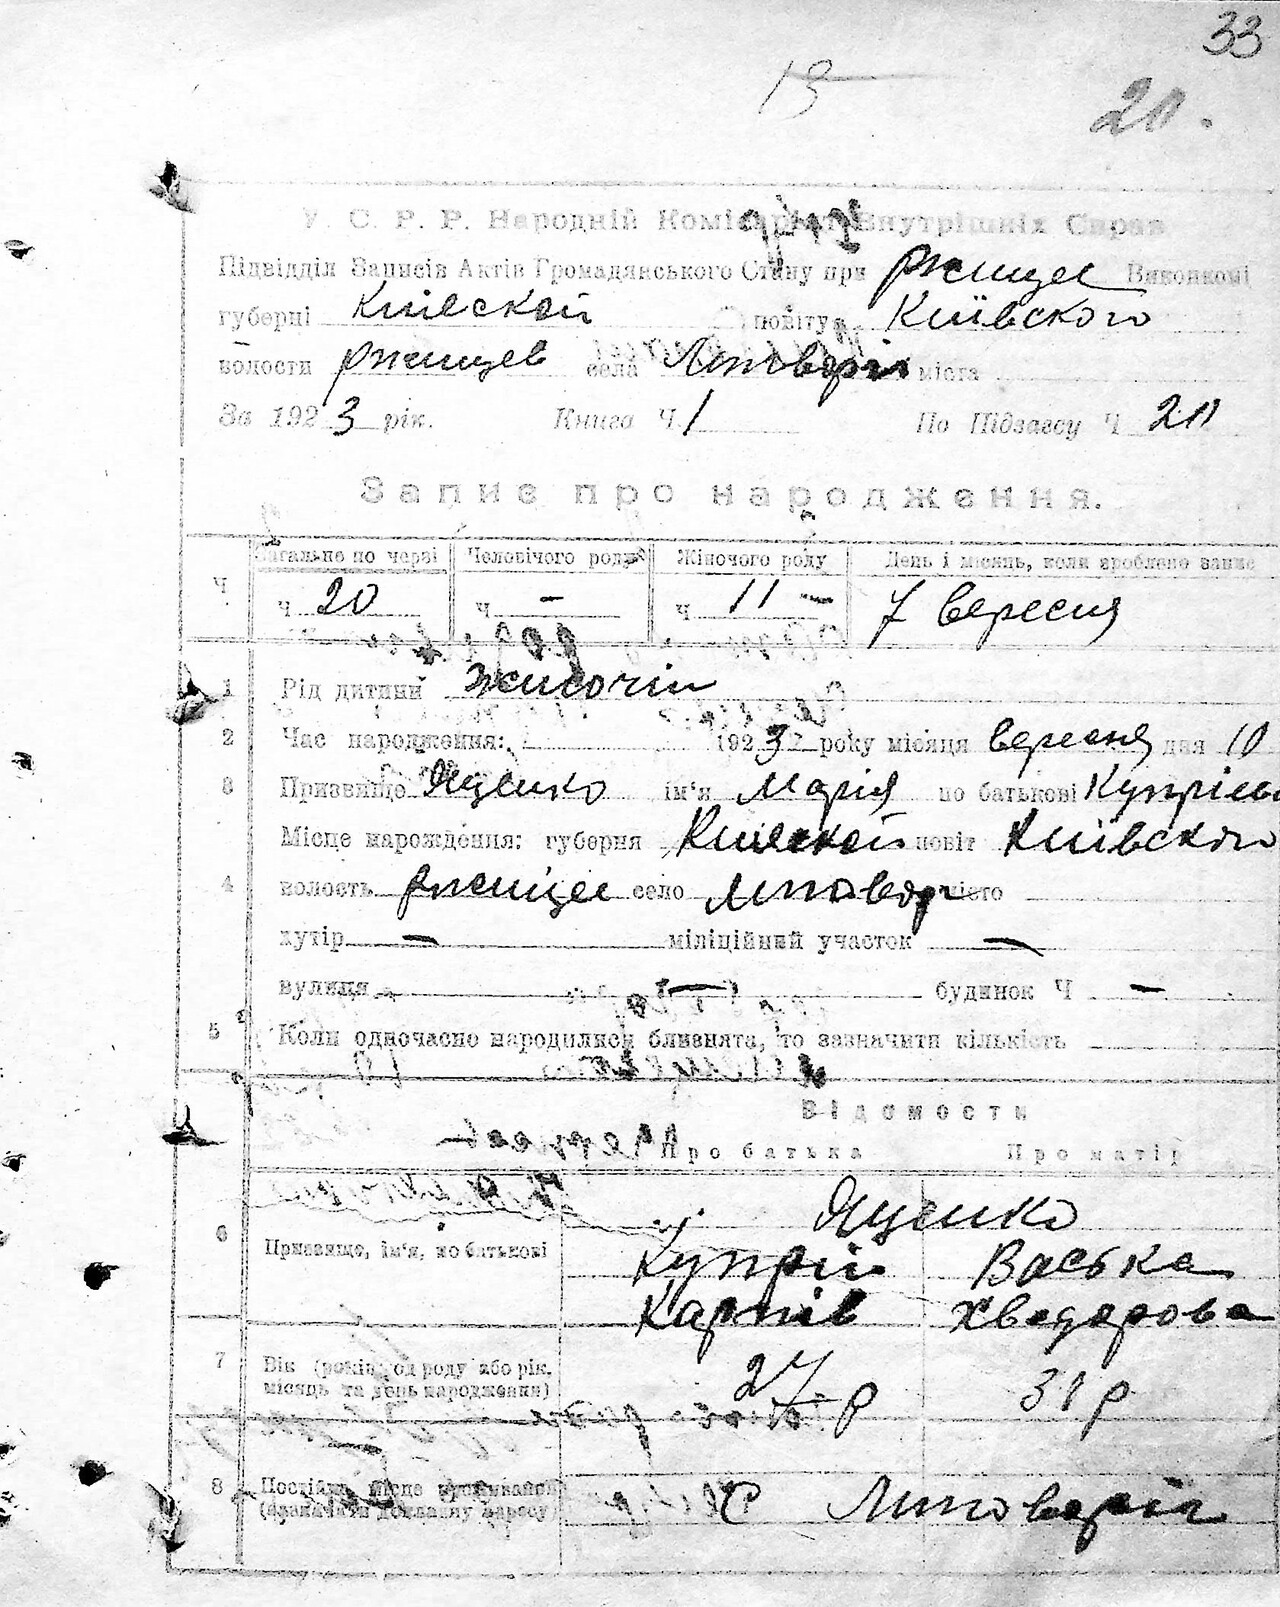 33
13
20.
У. С. Р. Р. Народній Комісаріят Внутрішніх Справ
Підвідділ Записів Актів Громадянського Стану при Ржищев Виконкомі
губерні Киевской повіту Київского
волости Ржищев села міста
За 1923 рік. Книга Ч 1 По Підзагсу Ч 20
Запис про народження.
Загально по черзі Человічого роду Жіночого роду День і місяць, коли зроблено запис
Ч ч 20 ч – ч 11 – 7 вересня
1 Рід дитини жиночій
2 Час народження: 1923 року місяця вересня дня 10
3 Призвище Яценко ім'я Марія по батькові
Місце народження: губерня Киевской повіт Київского
4 волость Ржищев село місто
хутір – міліційний участок –
вулиця – будинок Ч –
5 Коли одночасно народилися близнята, то зазначити кількість
Відомости
Про батька Про матір
6 Призвище, ім'я, по батькові
Яценко
Купрій Васька
Карпів Хведорова
7 Вік (років, од роду або рік, місяць та день народження) 27 р 31 р
8 Постійне місце проживання (зазначити докладну адресу) с